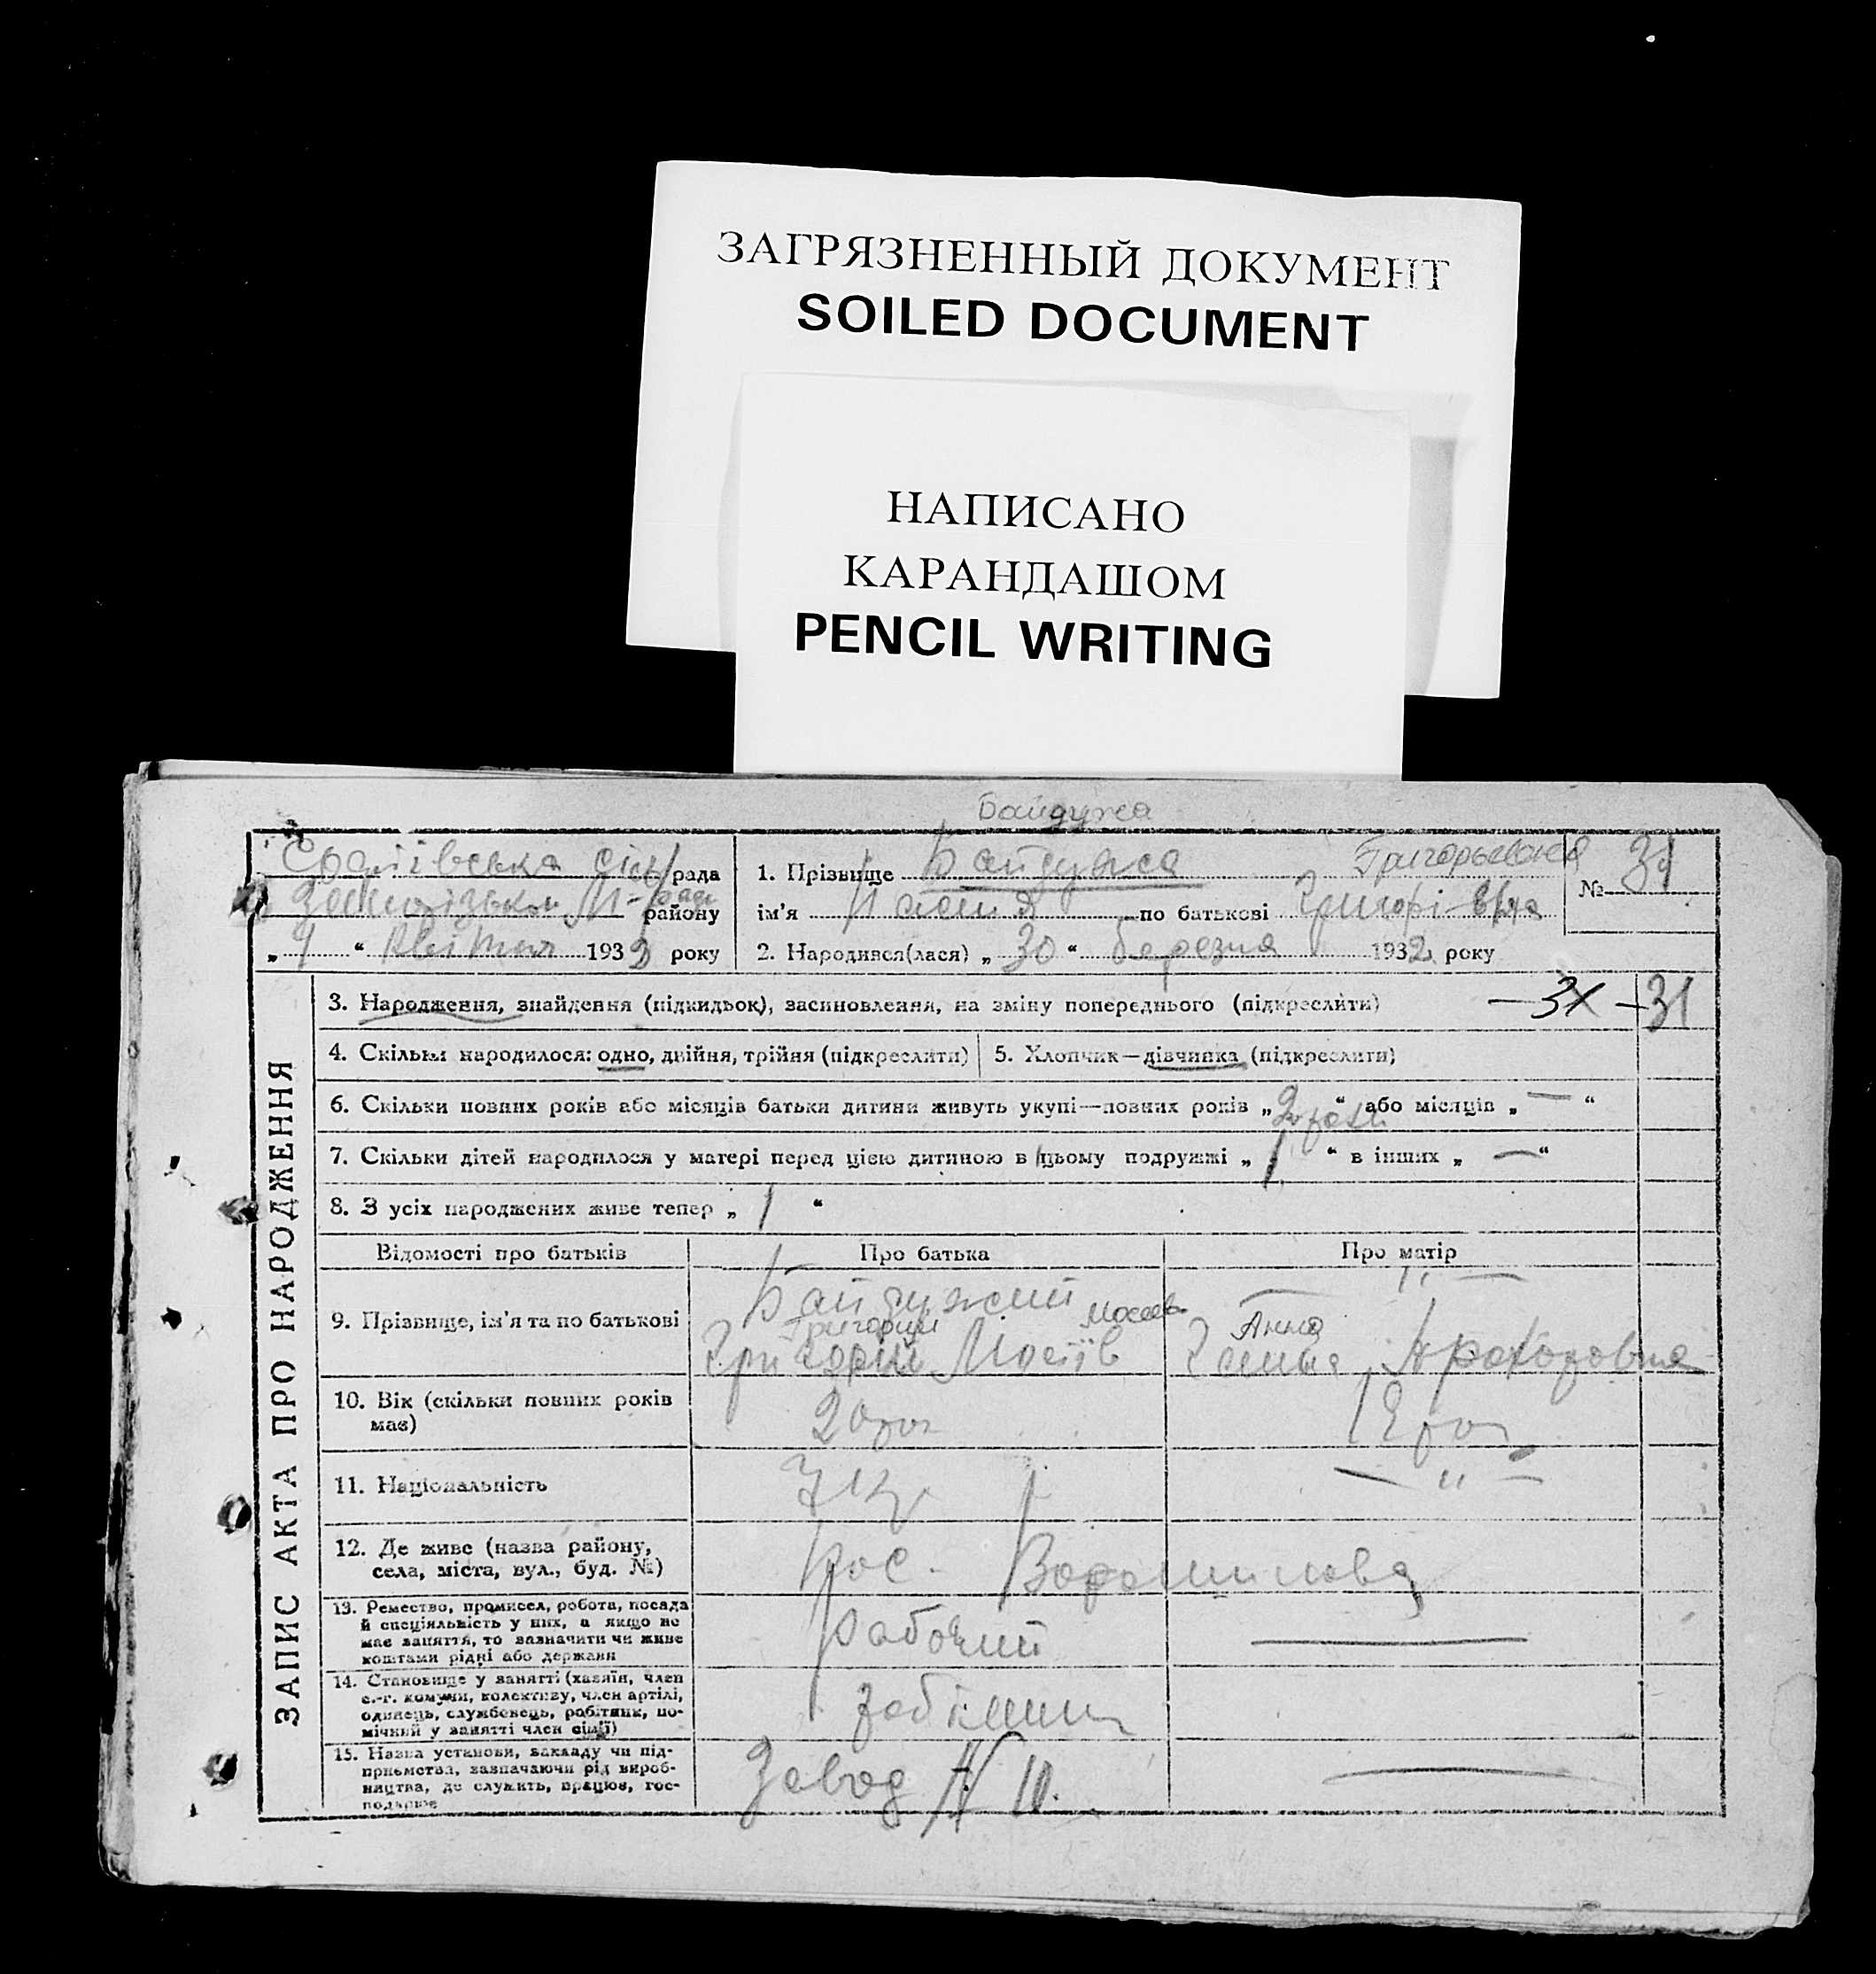 ЗАГРЯЗНЕННЫЙ ДОКУМЕНТ
SOILED DOCUMENT
НАПИСАНО
КАРАНДАШОМ
PENCIL WRITING
Байдужа
рада
району
1932 року
1. Прізвище Байдужа Григорьевна
ім'я Настя по батькові Григорівна
№ 31
2. Народився(лася) „ 30 “ березня 1932 року
ЗАПИС АКТА ПРО НАРОДЖЕННЯ
3. Народження, знайдення (підкидьок), засиновлення, на зміну попереднього (підкреслити) — 31
4. Скільки народилося: одно, двійня, трійня (підкреслити)
5. Хлопчик—дівчинка (підкреслити)
6. Скільки повних років або місяців батьки дитини живуть укупі—повних років „ 2 роки “ або місяців „ — “
7. Скільки дітей народилося у матері перед цією дитиною в цьому подружжі „ 1 “ в інших „ — “
8. З усіх народжених живе тепер „ 1 “
Відомості про батьків
Про батька
Про матір
9. Прізвище, ім'я та по батькові
Байдужий
Григорий
Григорій Мосіїв
— " —
Анна
Ганна Прохоровна
10. Вік (скільки повних років має)
20 рок
18 рок
11. Національність
Укр
— " —
12. Де живе (назва району, села, міста, вул., буд. №)
пос. Ворошилова
13. Ремество, промисел, робота, посада й спеціяльність у них, а якщо не має заняття, то зазначити чи живе коштами рідні або держави
рабочий
—
14. Становище у занятті (хазяїн, член с.-г. комуни, колективу, член артілі, одинець, службовець, робітник, помічний у занятті член сімії)
15. Назва установи, закладу чи підприємства, зазначаючи рід виробництва, де служить, працює, господарює
Завод № 10.
—